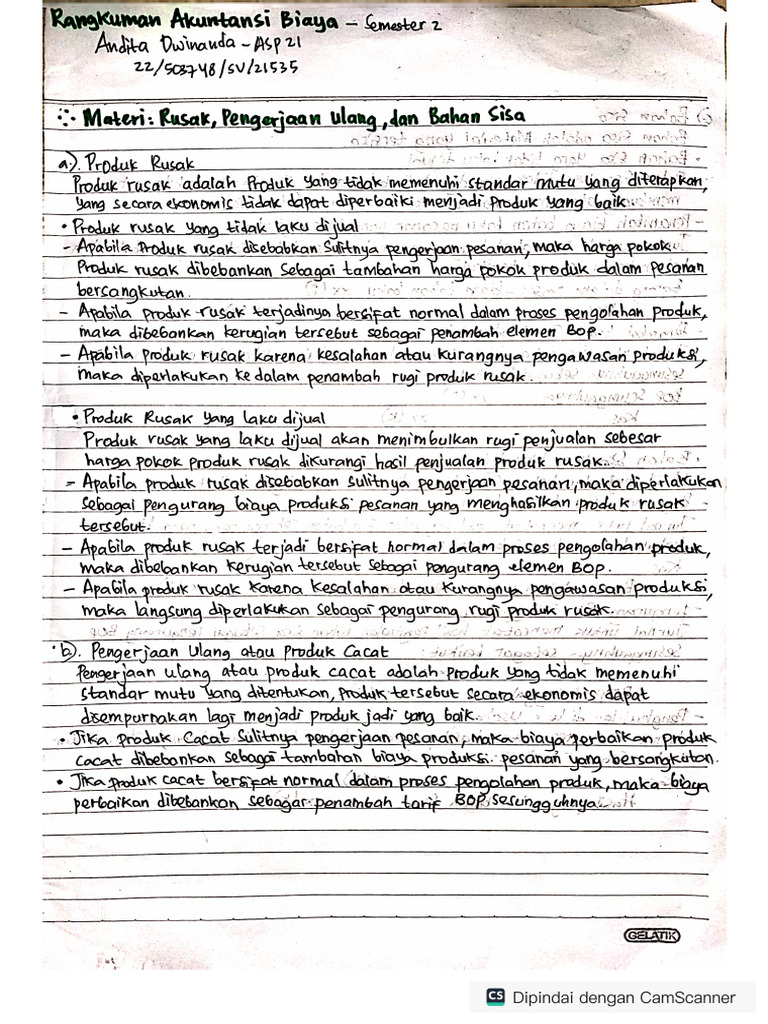 Rangkuman Akuntansi Biaya - Semester 2
Andita Dwinanda - ASP 21
22/503748/SV/21535
Materi: Rusak, Pengerjaan Ulang, dan Bahan Sisa
a). Produk Rusak
Produk rusak adalah Produk yang tidak memenuhi standar mutu yang diterapkan,
yang secara ekonomis tidak dapat diperbaiki menjadi produk yang baik.
• Produk rusak yang tidak laku dijual
- Apabila produk rusak disebabkan sulitnya pengerjaan pesanan, maka harga pokok
Produk rusak dibebankan sebagai tambahan harga pokok produk dalam pesanan
bersangkutan.
- Apabila produk rusak terjadinya bersifat normal dalam proses pengolahan produk,
maka dibebankan kerugian tersebut sebagai penambah elemen BOP.
- Apabila produk rusak karena kesalahan atau kurangnya pengawasan produksi,
maka diperlakukan ke dalam penambah rugi produk rusak.
• Produk Rusak yang laku dijual
Produk rusak yang laku dijual akan menimbulkan rugi penjualan sebesar
harga pokok produk rusak dikurangi hasil penjualan produk rusak.
- Apabila produk rusak disebabkan sulitnya pengerjaan pesanan, maka diperlakukan
sebagai pengurang biaya produksi pesanan yang menghasilkan produk rusak
tersebut.
- Apabila produk rusak terjadi bersifat normal dalam proses pengolahan produk,
maka dibebankan kerugian tersebut sebagai pengurang elemen BOP.
- Apabila produk rusak karena kesalahan atau kurangnya pengawasan produksi,
maka langsung diperlakukan sebagai pengurang rugi produk rusak.
b). Pengerjaan Ulang atau Produk Cacat
Pengerjaan ulang atau produk cacat adalah produk yang tidak memenuhi
standar mutu yang ditentukan, produk tersebut secara ekonomis dapat
disempurnakan lagi menjadi produk jadi yang baik.
• Jika produk cacat sulitnya pengerjaan pesanan, maka biaya perbaikan produk
cacat dibebankan sebagai tambahan biaya produksi pesanan yang bersangkutan.
• Jika produk cacat bersifat normal dalam proses pengolahan produk, maka biaya
perbaikan dibebankan sebagai penambah tarif BOP sesungguhnya.
GELATIK
CS Dipindai dengan CamScanner